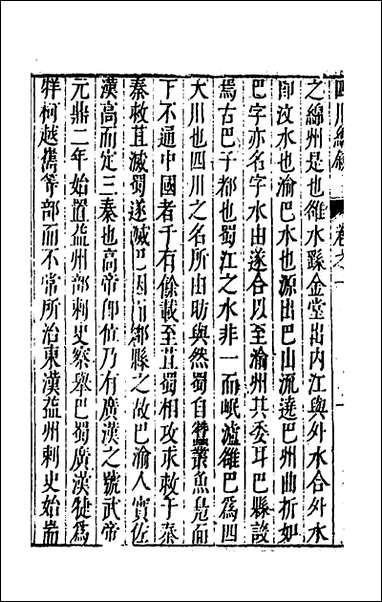 四川總錄 卷之一
之綿州是也雒水繇金堂出內江與外水合外水
卽汶水也渝巴水也源出巴山流遶巴州曲折如
巴字亦名字水由遂合以至渝州其委耳巴縣設
焉古巴子都也蜀江之水非一而岷瀘雒巴爲四
大川也四川之名所由昉與然蜀自蠶叢魚鳧而
下不通中國者千有餘載至苴蜀相攻求救于秦
秦救苴滅蜀遂滅巴因而郡縣之故巴渝人實佐
漢高而定三秦也高帝卽位乃有廣漢之號武帝
元鼎二年始置益州部刺史察舉巴蜀廣漢犍爲
牂柯越嶲等部而不常所治東漢益州刺史始耑